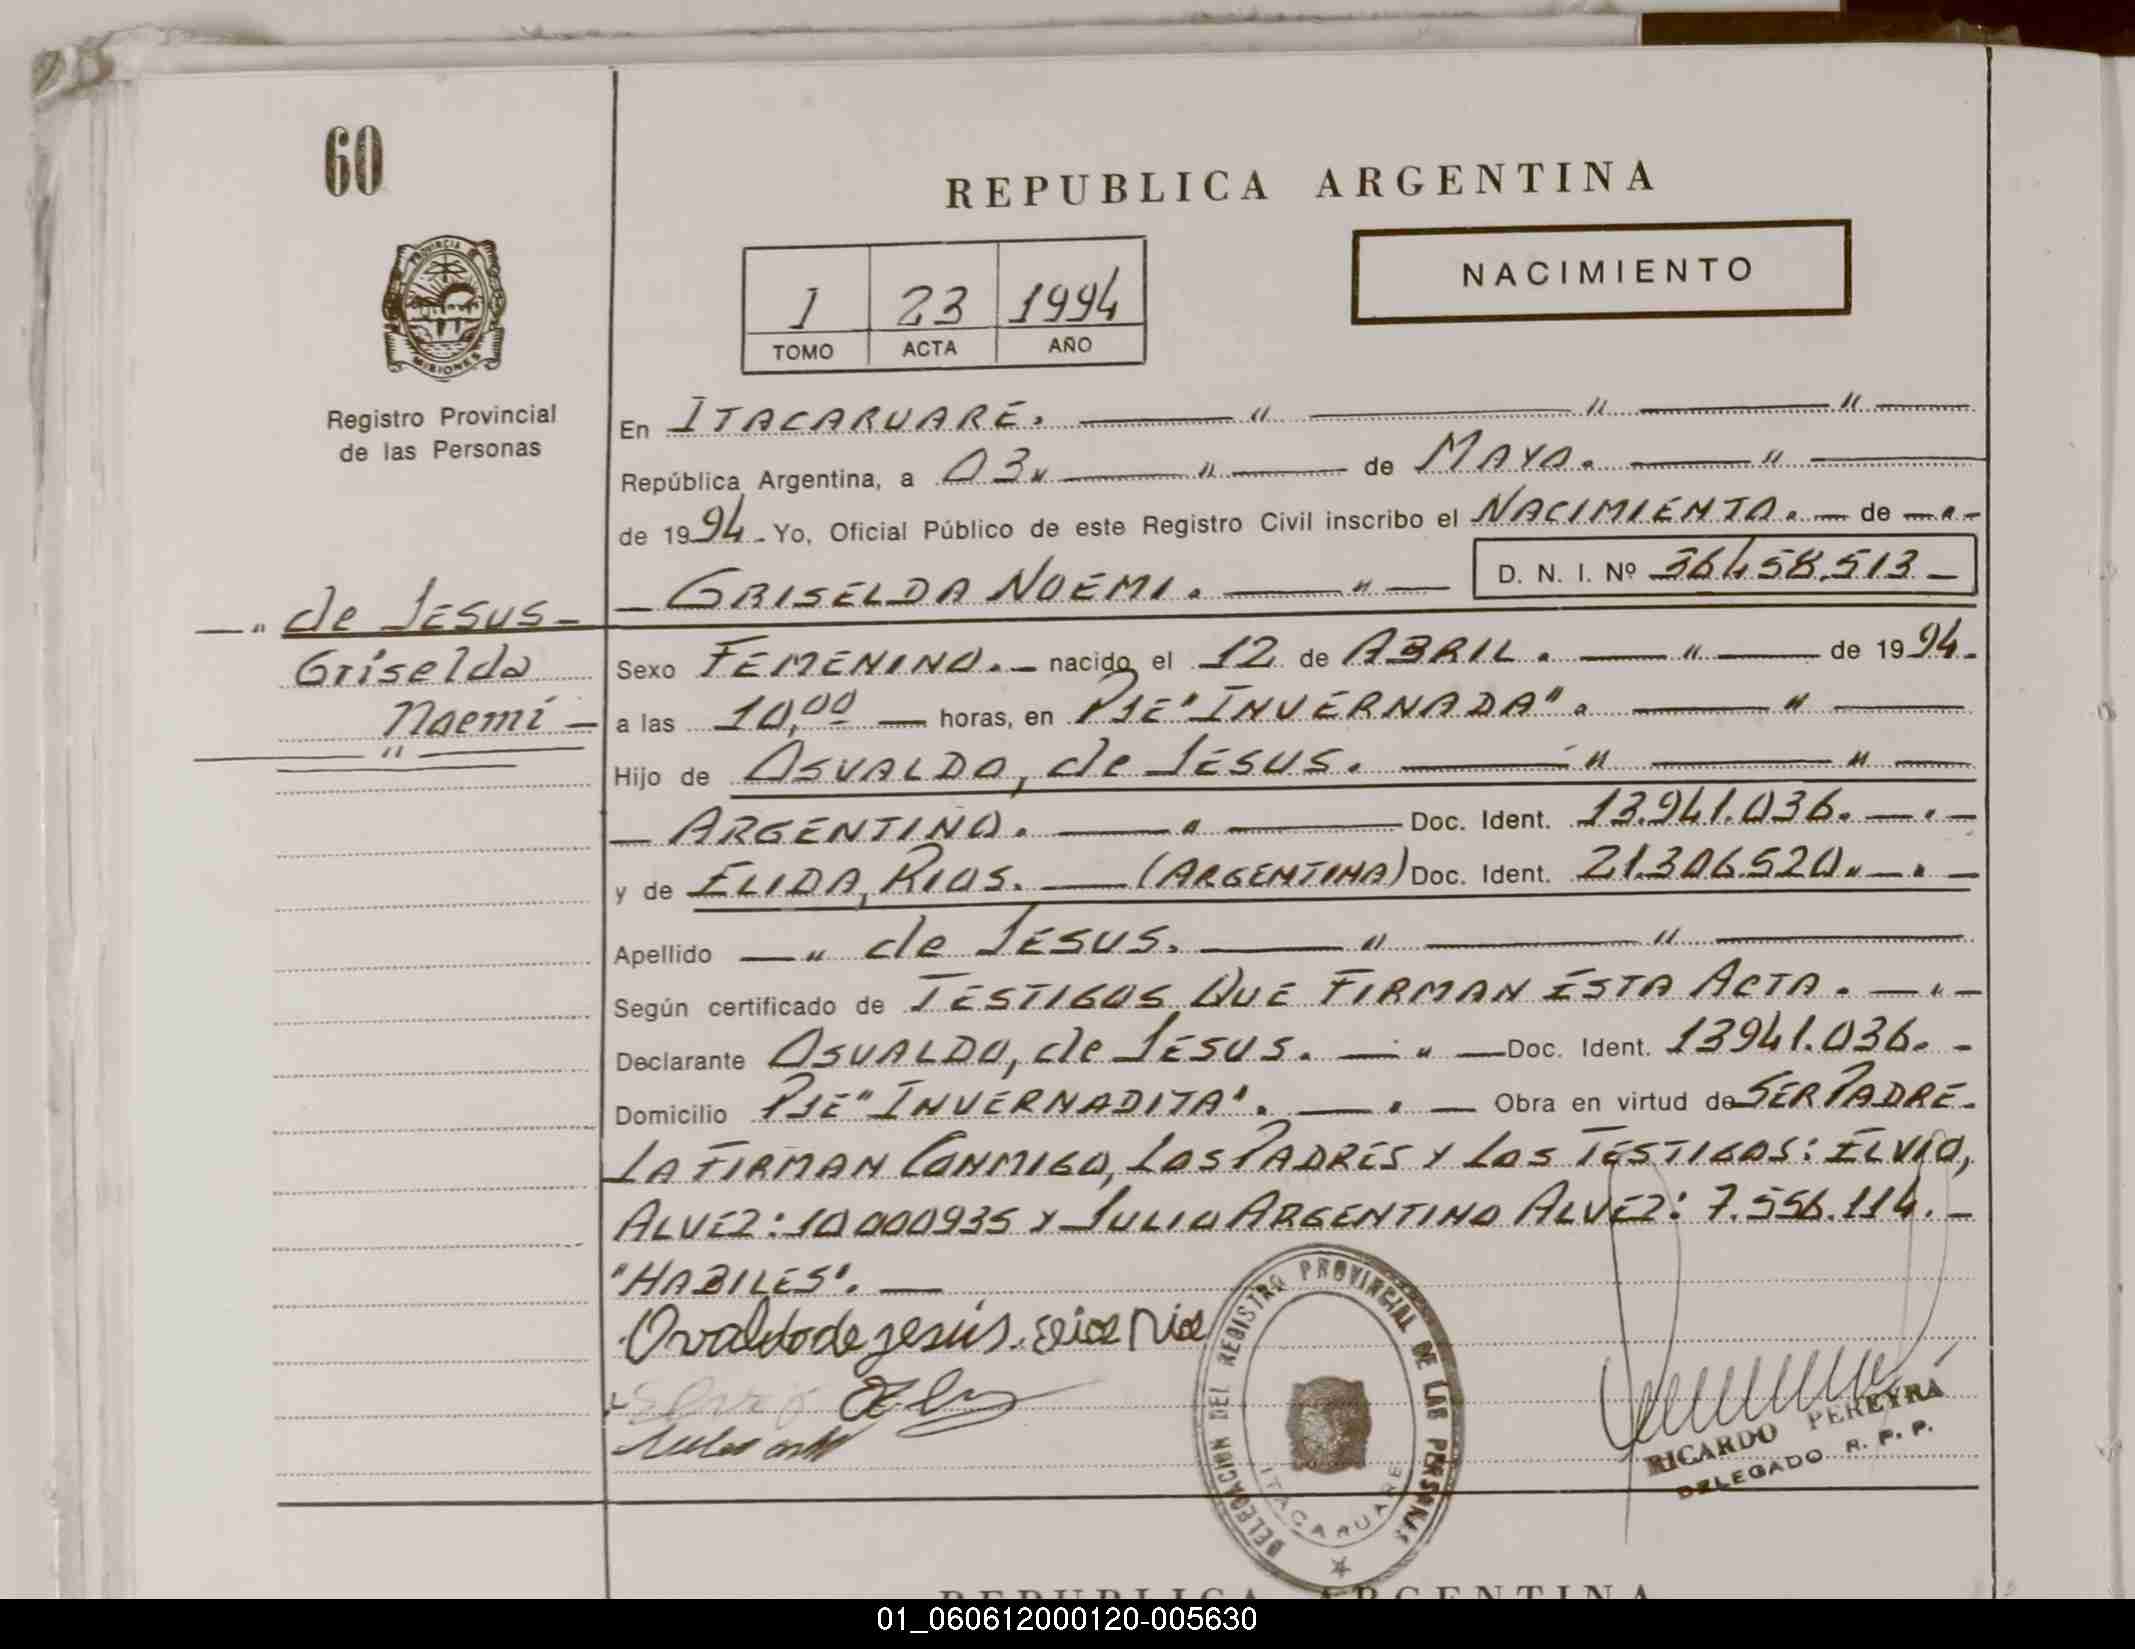 60
REPUBLICA ARGENTINA
PROVINCIA DE
MISIONES
NACIMIENTO
1 23 1994
TOMO ACTA AÑO
Registro Provincial
de las Personas
En ITACARUARE. — " — " — " —
República Argentina, a 03 " — " — de MAYO. — " —
de 1994 - Yo, Oficial Público de este Registro Civil inscribo el NACIMIENTO. — de — " -
— GRISELDA NOEMI. — " — D. N. I. Nº 36458.513 —
— " de JESUS —
Griselda
Noemi —
— " —
Sexo FEMENINO. — nacido el 12 de ABRIL. — " — de 1994.
a las 10,00 — horas, en PJE "INVERNADA". — " —
Hijo de OSVALDO, de JESUS. — " — " —
— ARGENTINO. — " — Doc. Ident. 13.941.036. — " —
y de ELIDA, RIOS. — (ARGENTINA) Doc. Ident. 21.306.520. — " —
Apellido — " de JESUS. — " — " —
Según certificado de TESTIGOS QUE FIRMAN ESTA ACTA. — " —
Declarante OSVALDO, de JESUS. — " — Doc. Ident. 13941.036. -
Domicilio PJE "INVERNADITA". — " — Obra en virtud de SER PADRE.
LA FIRMAN CONMIGO, LOS PADRES Y LOS TESTIGOS: ELVIO,
ALVEZ: 10000935 Y JULIO ARGENTINO ALVEZ: 7.556.114. —
"HABILES". —
Ovaldo de jesús.
DELEGACION DEL REGISTRO PROVINCIAL DE LAS PERSONAS
ITACARUARE
RICARDO PEREYRA
DELEGADO R. P. P.
REPUBLICA ARGENTINA
01_060612000120-005630